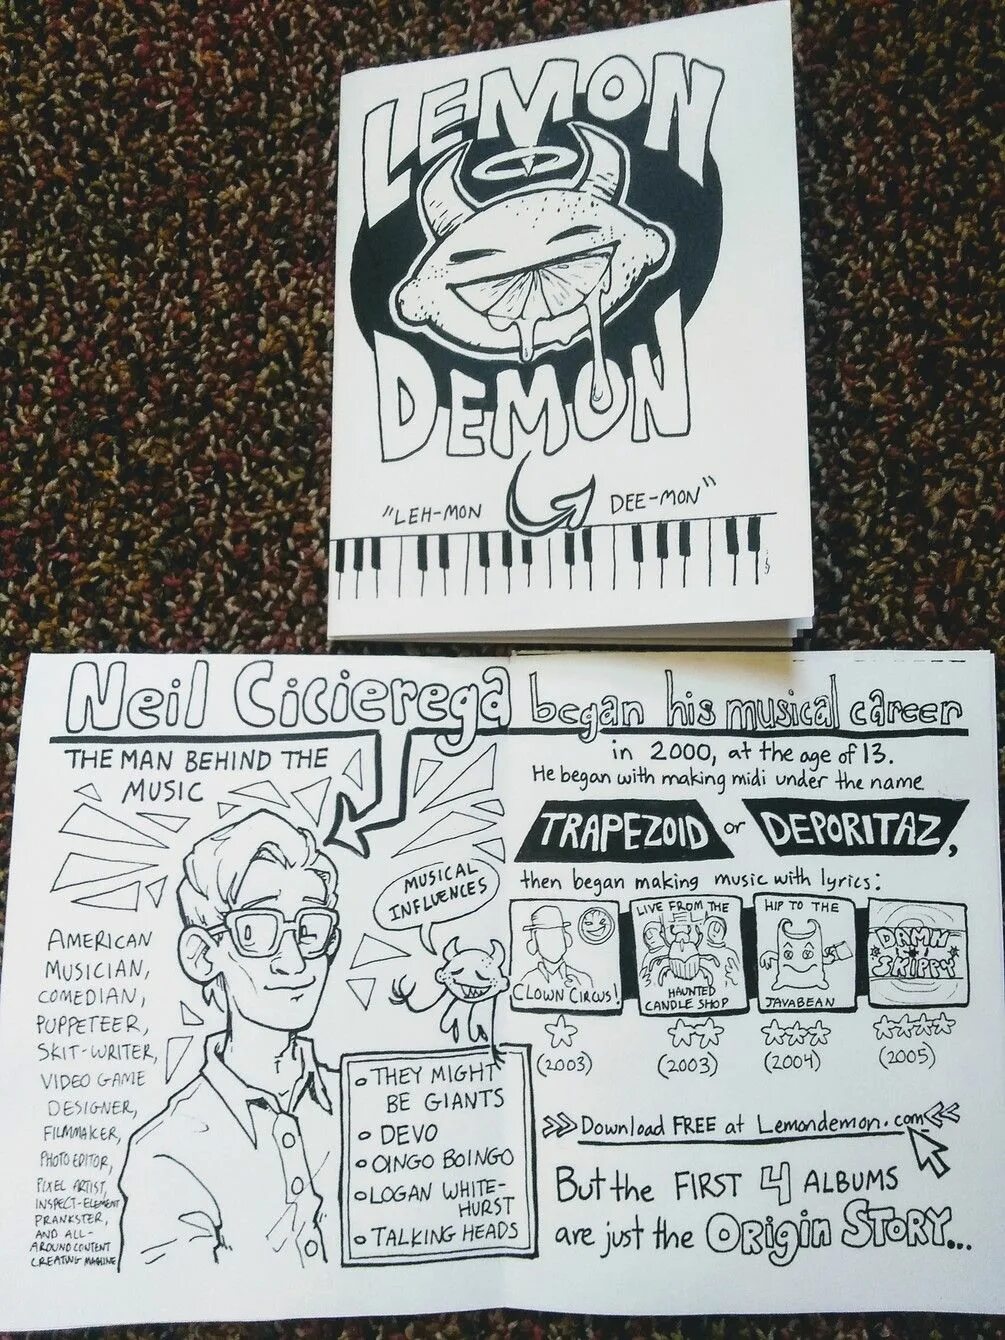 LEMON
DEMON
"LEH-MON
DEE-MON"
Neil Cicierega
THE MAN BEHIND THE
MUSIC
AMERICAN
MUSICIAN,
COMEDIAN,
PUPPETEER,
SKIT-WRITER,
VIDEO GAME
DESIGNER,
FILMMAKER,
PHOTO EDITOR,
PIXEL ARTIST,
INSPECT-ELEMENT
PRANKSTER,
AND ALL-
AROUND CONTENT
CREATING MACHINE
MUSICAL
INFLUENCES
THEY MIGHT
BE GIANTS
DEVO
OINGO BOINGO
LOGAN WHITE-
HURST
TALKING HEADS
began his musical career
in 2000, at the age of 13.
He began with making midi under the name
TRAPEZOID or DEPORITAZ,
then began making music with lyrics:
CLOWN CIRCUS!
(2003)
LIVE FROM THE
HAUNTED
CANDLE SHOP
(2003)
HIP TO THE
JAVABEAN
(2004)
DAMN
SKIPPY
(2005)
Download FREE at Lemondemon.com
But the FIRST 4 ALBUMS
are just the ORIGIN STORY...